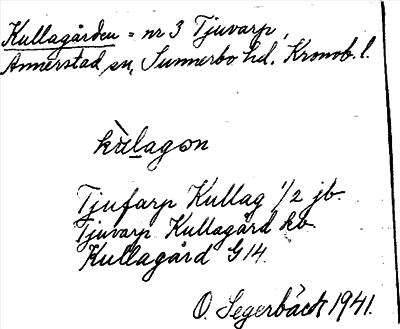 Kullagården = nr 3 Tjuvarp,
Annerstad sn, Sunnerbo hd. Kronob. l.
kùlagon
Tjufarp Kullag 1/2 jb.
Tjuvarp Kullagård kb
Kullagård G 14.
O. Segerbäck 1941.